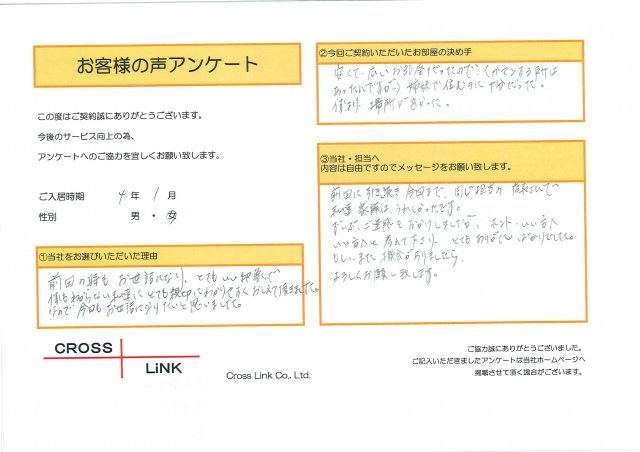 お客様の声アンケート
この度はご契約誠にありがとうございます。
今後のサービス向上の為、
アンケートへのご協力を宜しくお願い致します。
ご入居時期 4年 1月
性別 男・女
①当社をお選びいただいた理由
前回の時も お世話になり、とてもいい印象で
何もわからない私達に とても親切にわかりやすく おしえて頂きました。
なので 今回も お世話になりたいと思いました。
②今回ご契約いただいたお部屋の決め手
安くて 広い お部屋だったので、(ガマンする所は
あったんですが) 姉妹で 住むのに 十分だった。
何より 場所が良かった。
③当社・担当へ
内容は自由ですのでメッセージをお願い致します。
前回に引き続き 今回まで、同じ担当の さんで
私達 家族は、うれしかったです。
ご迷惑を おかけしましたが、ホント いい方
いい方へと 考えて下さり、とても ありがたい ばかりでした。
もし、また 機会がありましたら、
よろしくお願い致します。
CROSS
LiNK
Cross Link Co., Ltd.
ご協力誠にありがとうございました。
ご記入いただきましたアンケートは当社ホームページへ
掲載させて頂く場合がございます。